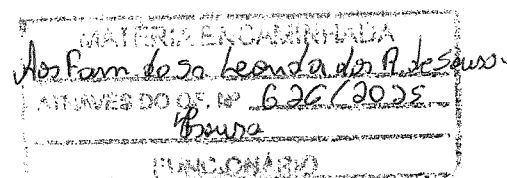 MATÉRIA ENCAMINHADA
Aos Fam do Sr Leonda dos R. de Sousa.
ATRAVÉS DO OF. Nº 626/2025
Sousa
FUNCIONÁRIO